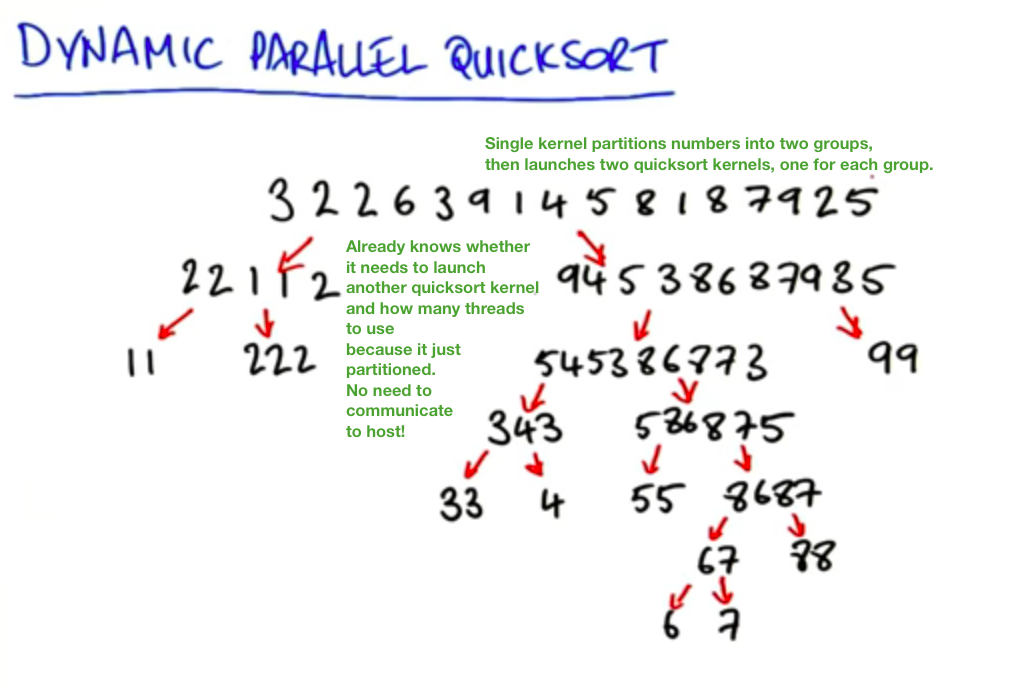 DYNAMIC PARALLEL QUICKSORT
Single kernel partitions numbers into two groups,
then launches two quicksort kernels, one for each group.
3 2 2 6 3 9 1 4 5 8 1 8 7 9 2 5
2 2 1 1 2
Already knows whether
it needs to launch
another quicksort kernel
and how many threads
to use
because it just
partitioned.
No need to
communicate
to host!
9 4 5 3 8 6 8 7 9 3 5
11
222
5 4 5 3 8 6 8 7 7 3
99
343
5 8 6 8 7 5
33
4
55
8687
67
88
6
7